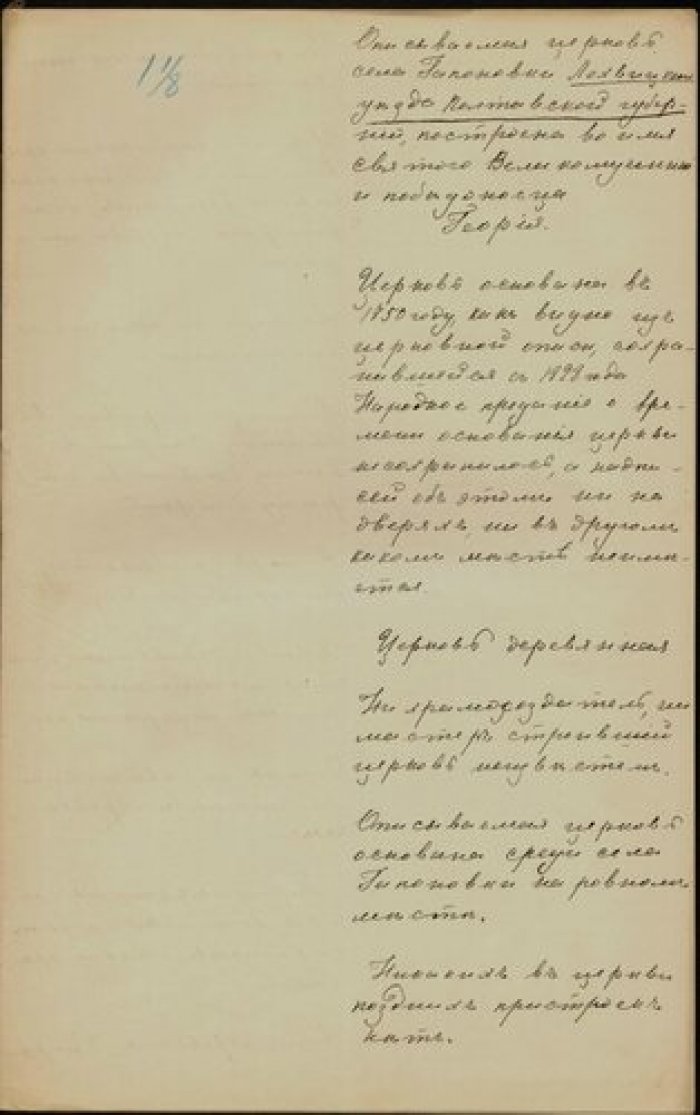 Описываемая церковь
села Гапоновки Лохвицкаго
уѣзда Полтавской губер-
ніи, построена во имя
святого Великомученика
и побѣдоносца
Георгія.
Церковь основана въ
году, какъ видно изъ
церковной описи, сохра-
нившейся съ года
Народное преданіе о вре-
мени основанія церкви
несохранилось, а надпи-
сей объ этомъ ни на
дверяхъ, ни въ другомъ
какомъ мѣстѣ неимѣ-
ется.
Церковь деревянная
Ни храмоздатель, ни
мастеръ строившій
церковь неизвѣстны.
Описываемая церковь
основана среди села
Гапоновки на ровномъ
мѣстѣ.
Никакихъ въ церкви
позднихъ пристроекъ
нѣтъ.